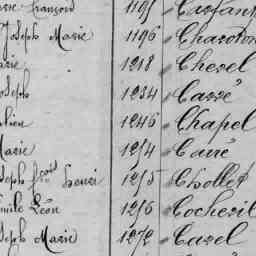 françois 1195
Joseph Marie 1196 Charon
1218 Chesel
Joseph 1234 Carré
Julien 1246 Chapel
Marie 1254 Carré
Joseph frois henri 1255 Chollet
Emile Léon 1256 Cocheril
Joseph Marie 1272 Carel